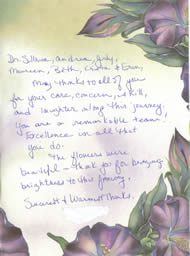 Dr. Silverie, Andrea, Judy,
Maureen, Beth, Krista & Erin,
Many thanks to all of you
for your care, concern, skill,
and laughter along this journey.
You are a remarkable team!
Excellence in all that
you do.
The flowers were
beautiful - thank you for bringing
brightness to this journey.
Sincerest & Warmest Thanks,